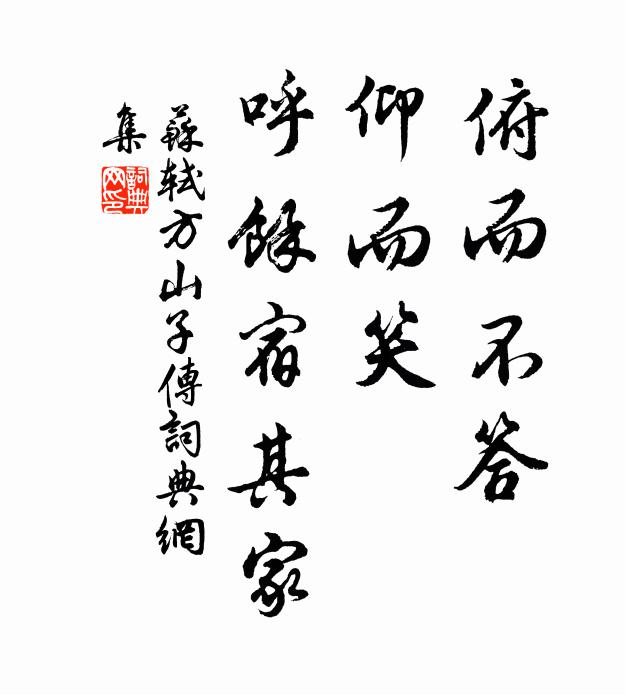 俯而不答
仰而笑
呼餘宿其家
蘇軾方山子傳詞典網
集
詞典
网印